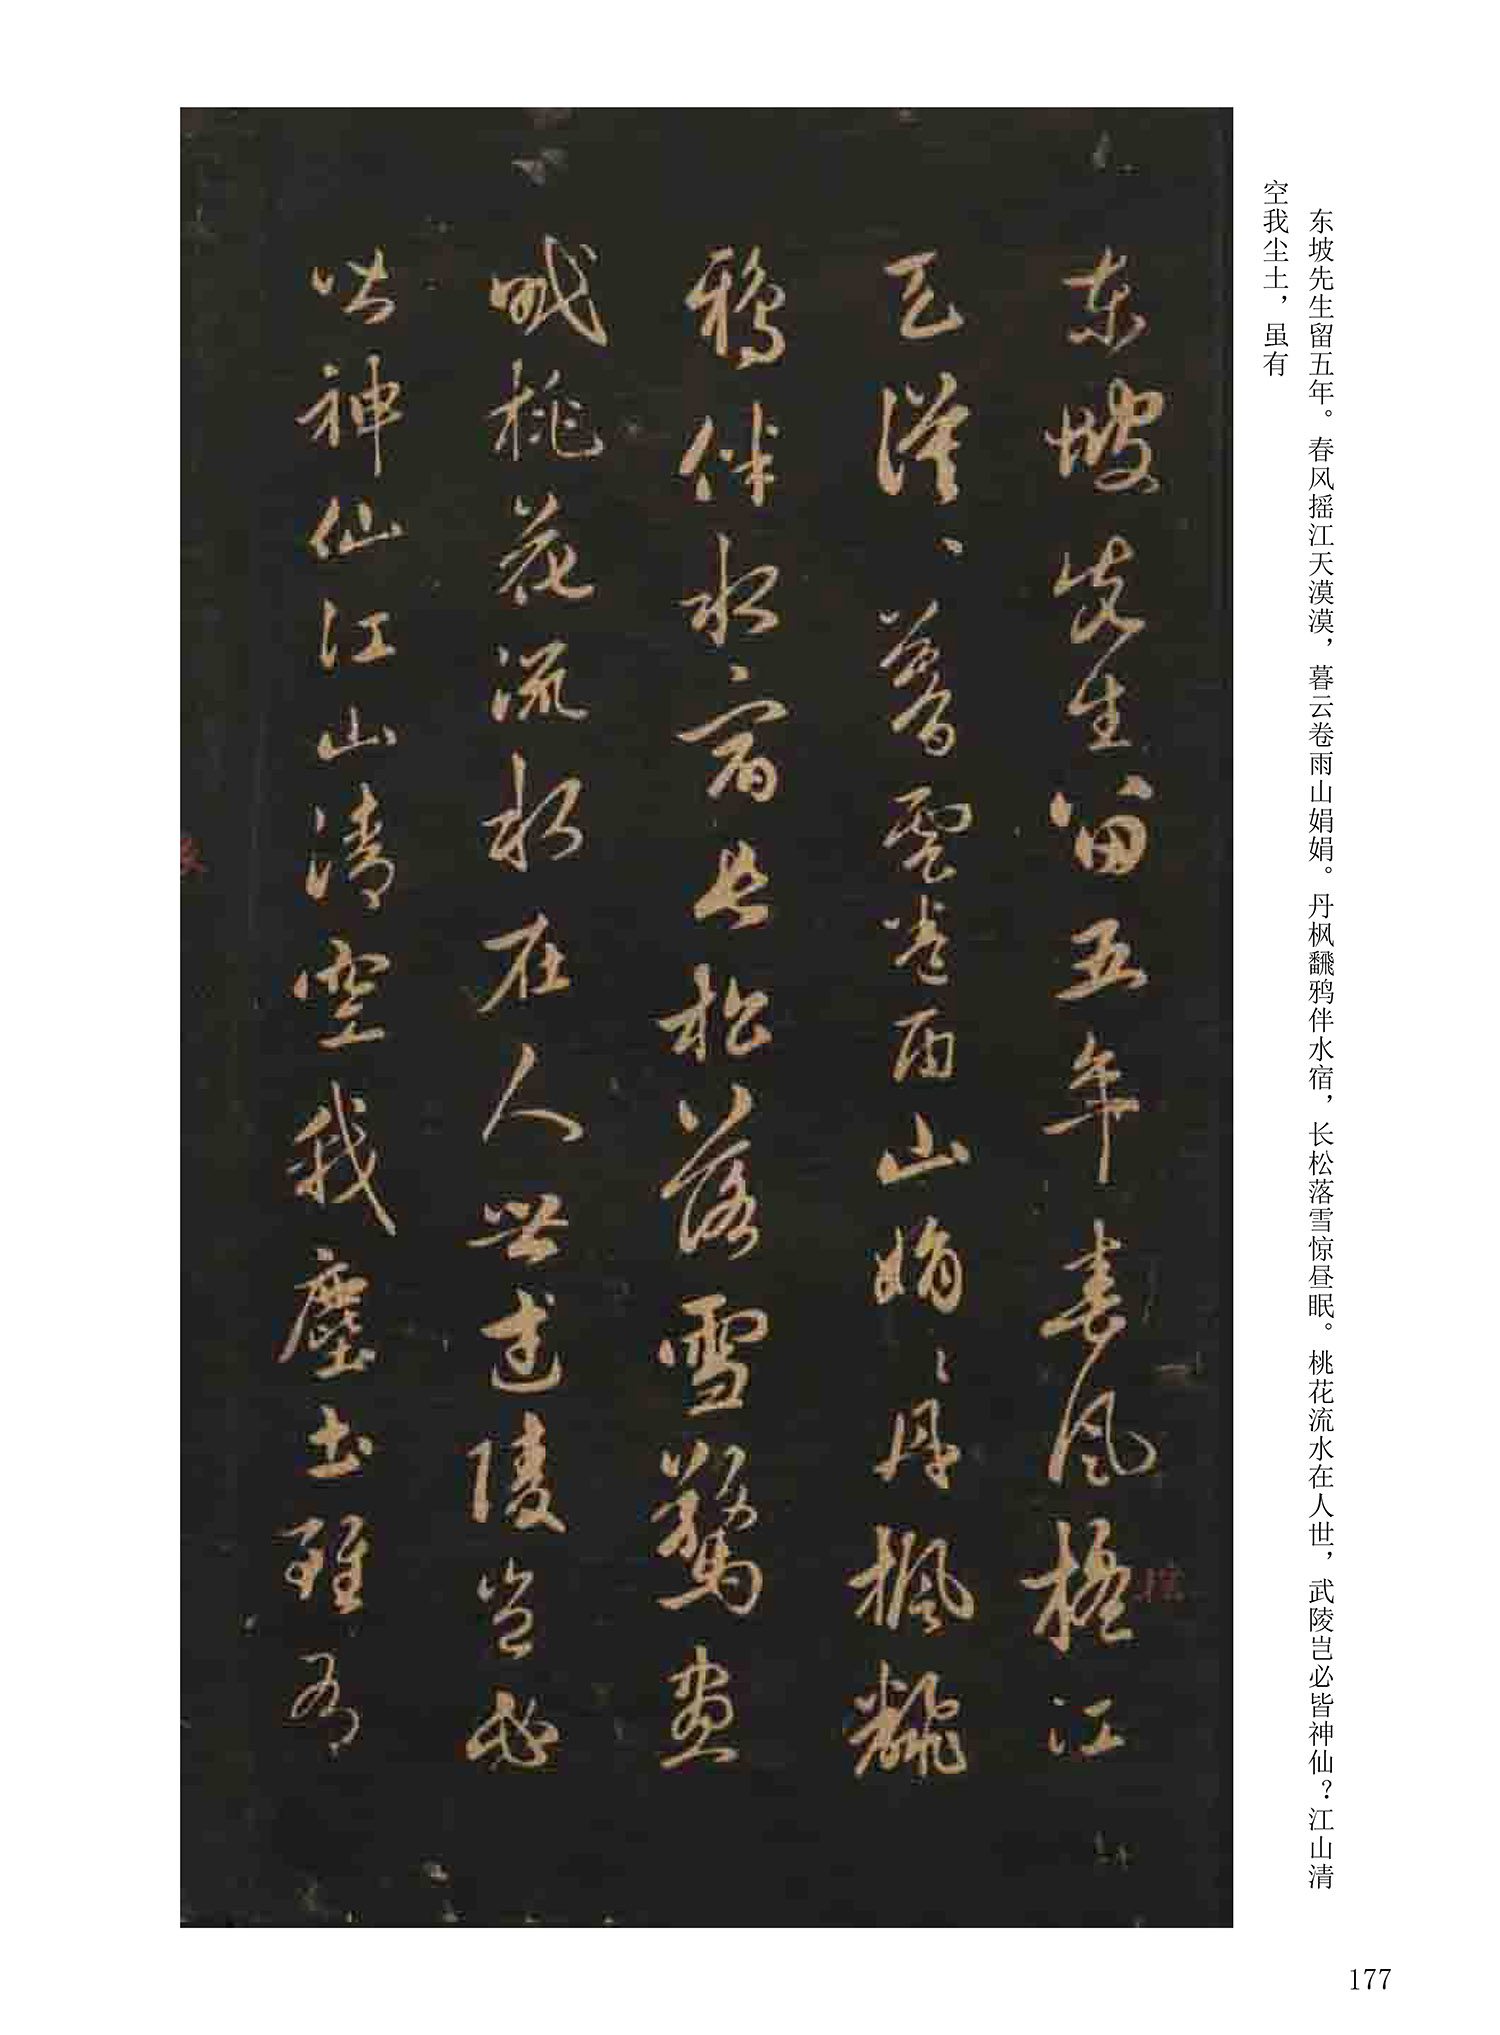 东坡先生留五年。春风摇江天漠漠，暮云卷雨山娟娟。丹枫翻鸦伴水宿，长松落雪惊昼眠。桃花流水在人世，武陵岂必皆神仙？江山清
空我尘土，虽有
東坡先生留五年春風摇江
天漠〻暮雲卷雨山娟〻丹楓飜
鴉伴水宿長松落雪驚晝
眠桃花流水在人世武陵豈必
皆神仙江山清空我塵土雖有
177